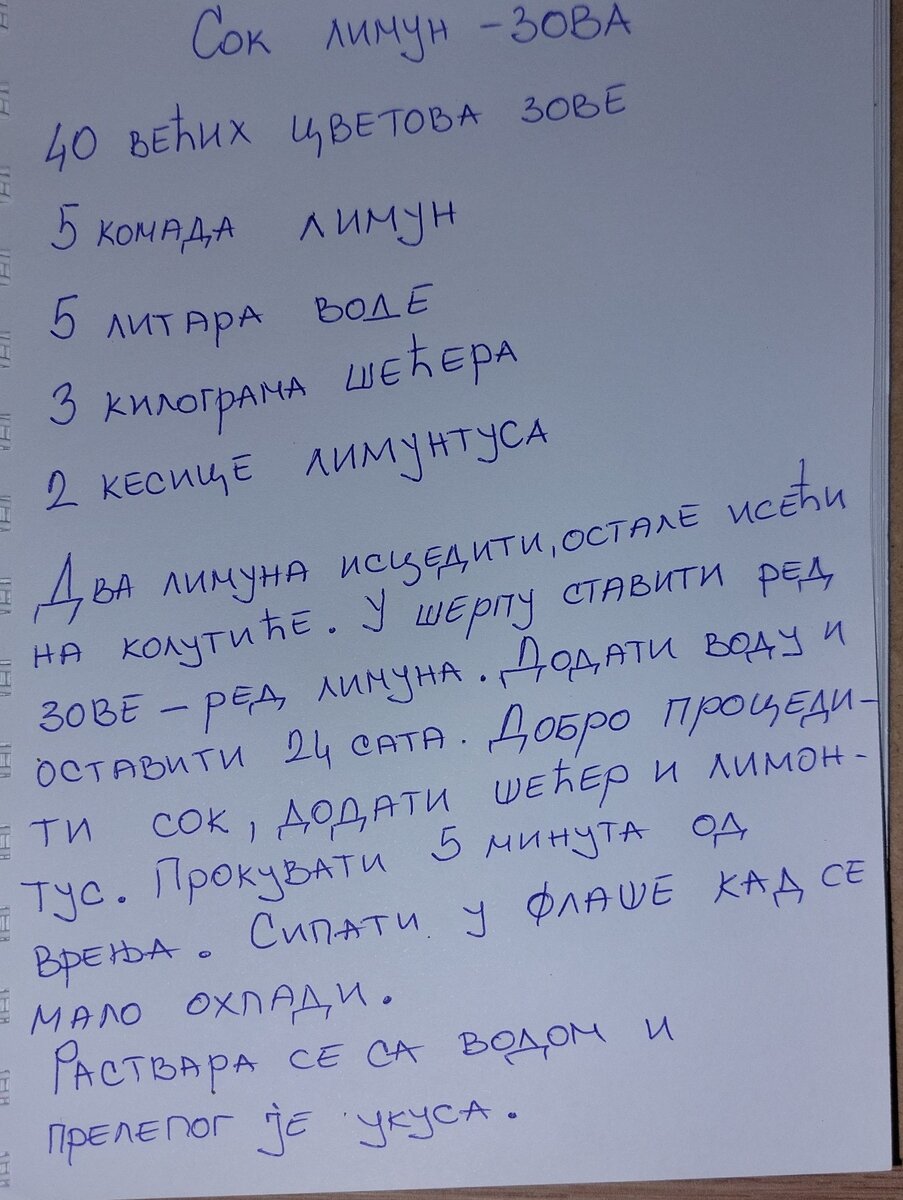 Сок лимун - ЗОВА
40 већих цветова зове
5 комада лимун
5 литара воде
3 килограма шећера
2 кесице лимунтуса
Два лимуна исцедити, остале исећи
на колутиће. У шерпу ставити ред
зове - ред лимуна. Додати воду и
оставити 24 сата. Добро процеди-
ти сок, додати шећер и лимон-
тус. Прокувати 5 минута од
врења. Сипати у флаше кад се
мало охлади.
Раствара се са водом и
прелепог је укуса.